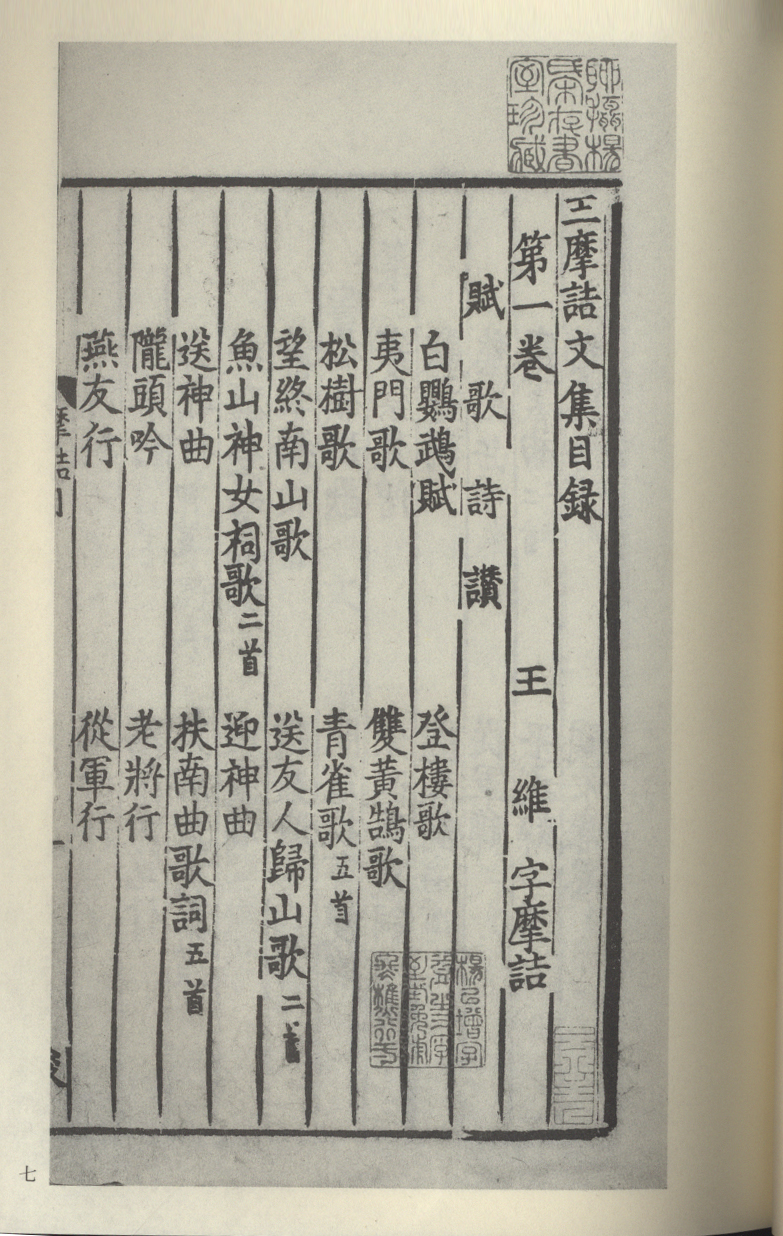 王摩詰文集目録
第一卷 王維 字摩詰
賦 歌 詩 讚
白鸚鵡賦 登樓歌
夷門歌 雙黃鵠歌
松樹歌 青雀歌 五首
望終南山歌 送友人歸山歌 二首
魚山神女祠歌 二首 迎神曲
送神曲 扶南曲歌詞 五首
隴頭吟 老將行
燕支行 從軍行
摩詰目
七